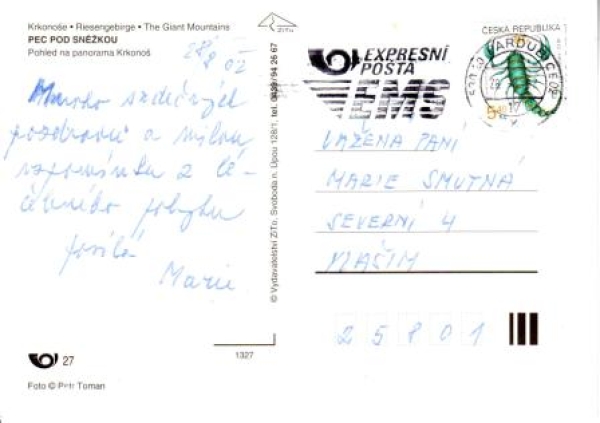 Krkonoše • Riesengebirge • The Giant Mountains
PEC POD SNĚŽKOU
Pohled na panorama Krkonoš
28/8 02
Mnoho srdečných
pozdravů a milou
vzpomínku z lé-
čebního pobytu
posílá
Marie
27
Foto © Petr Toman
1327
© Vydavatelství ZiTo, Svoboda n. Úpou 128/1, tel. 0439/94 26 67
ZiTo
EXPRESNÍ
POŠTA
EMS
ČESKÁ REPUBLIKA
5,40
PARDUBICE
VÁŽENÁ PANÍ
MARIE SMUTNÁ
SEVERNÍ 4
VLAŠIM
25801